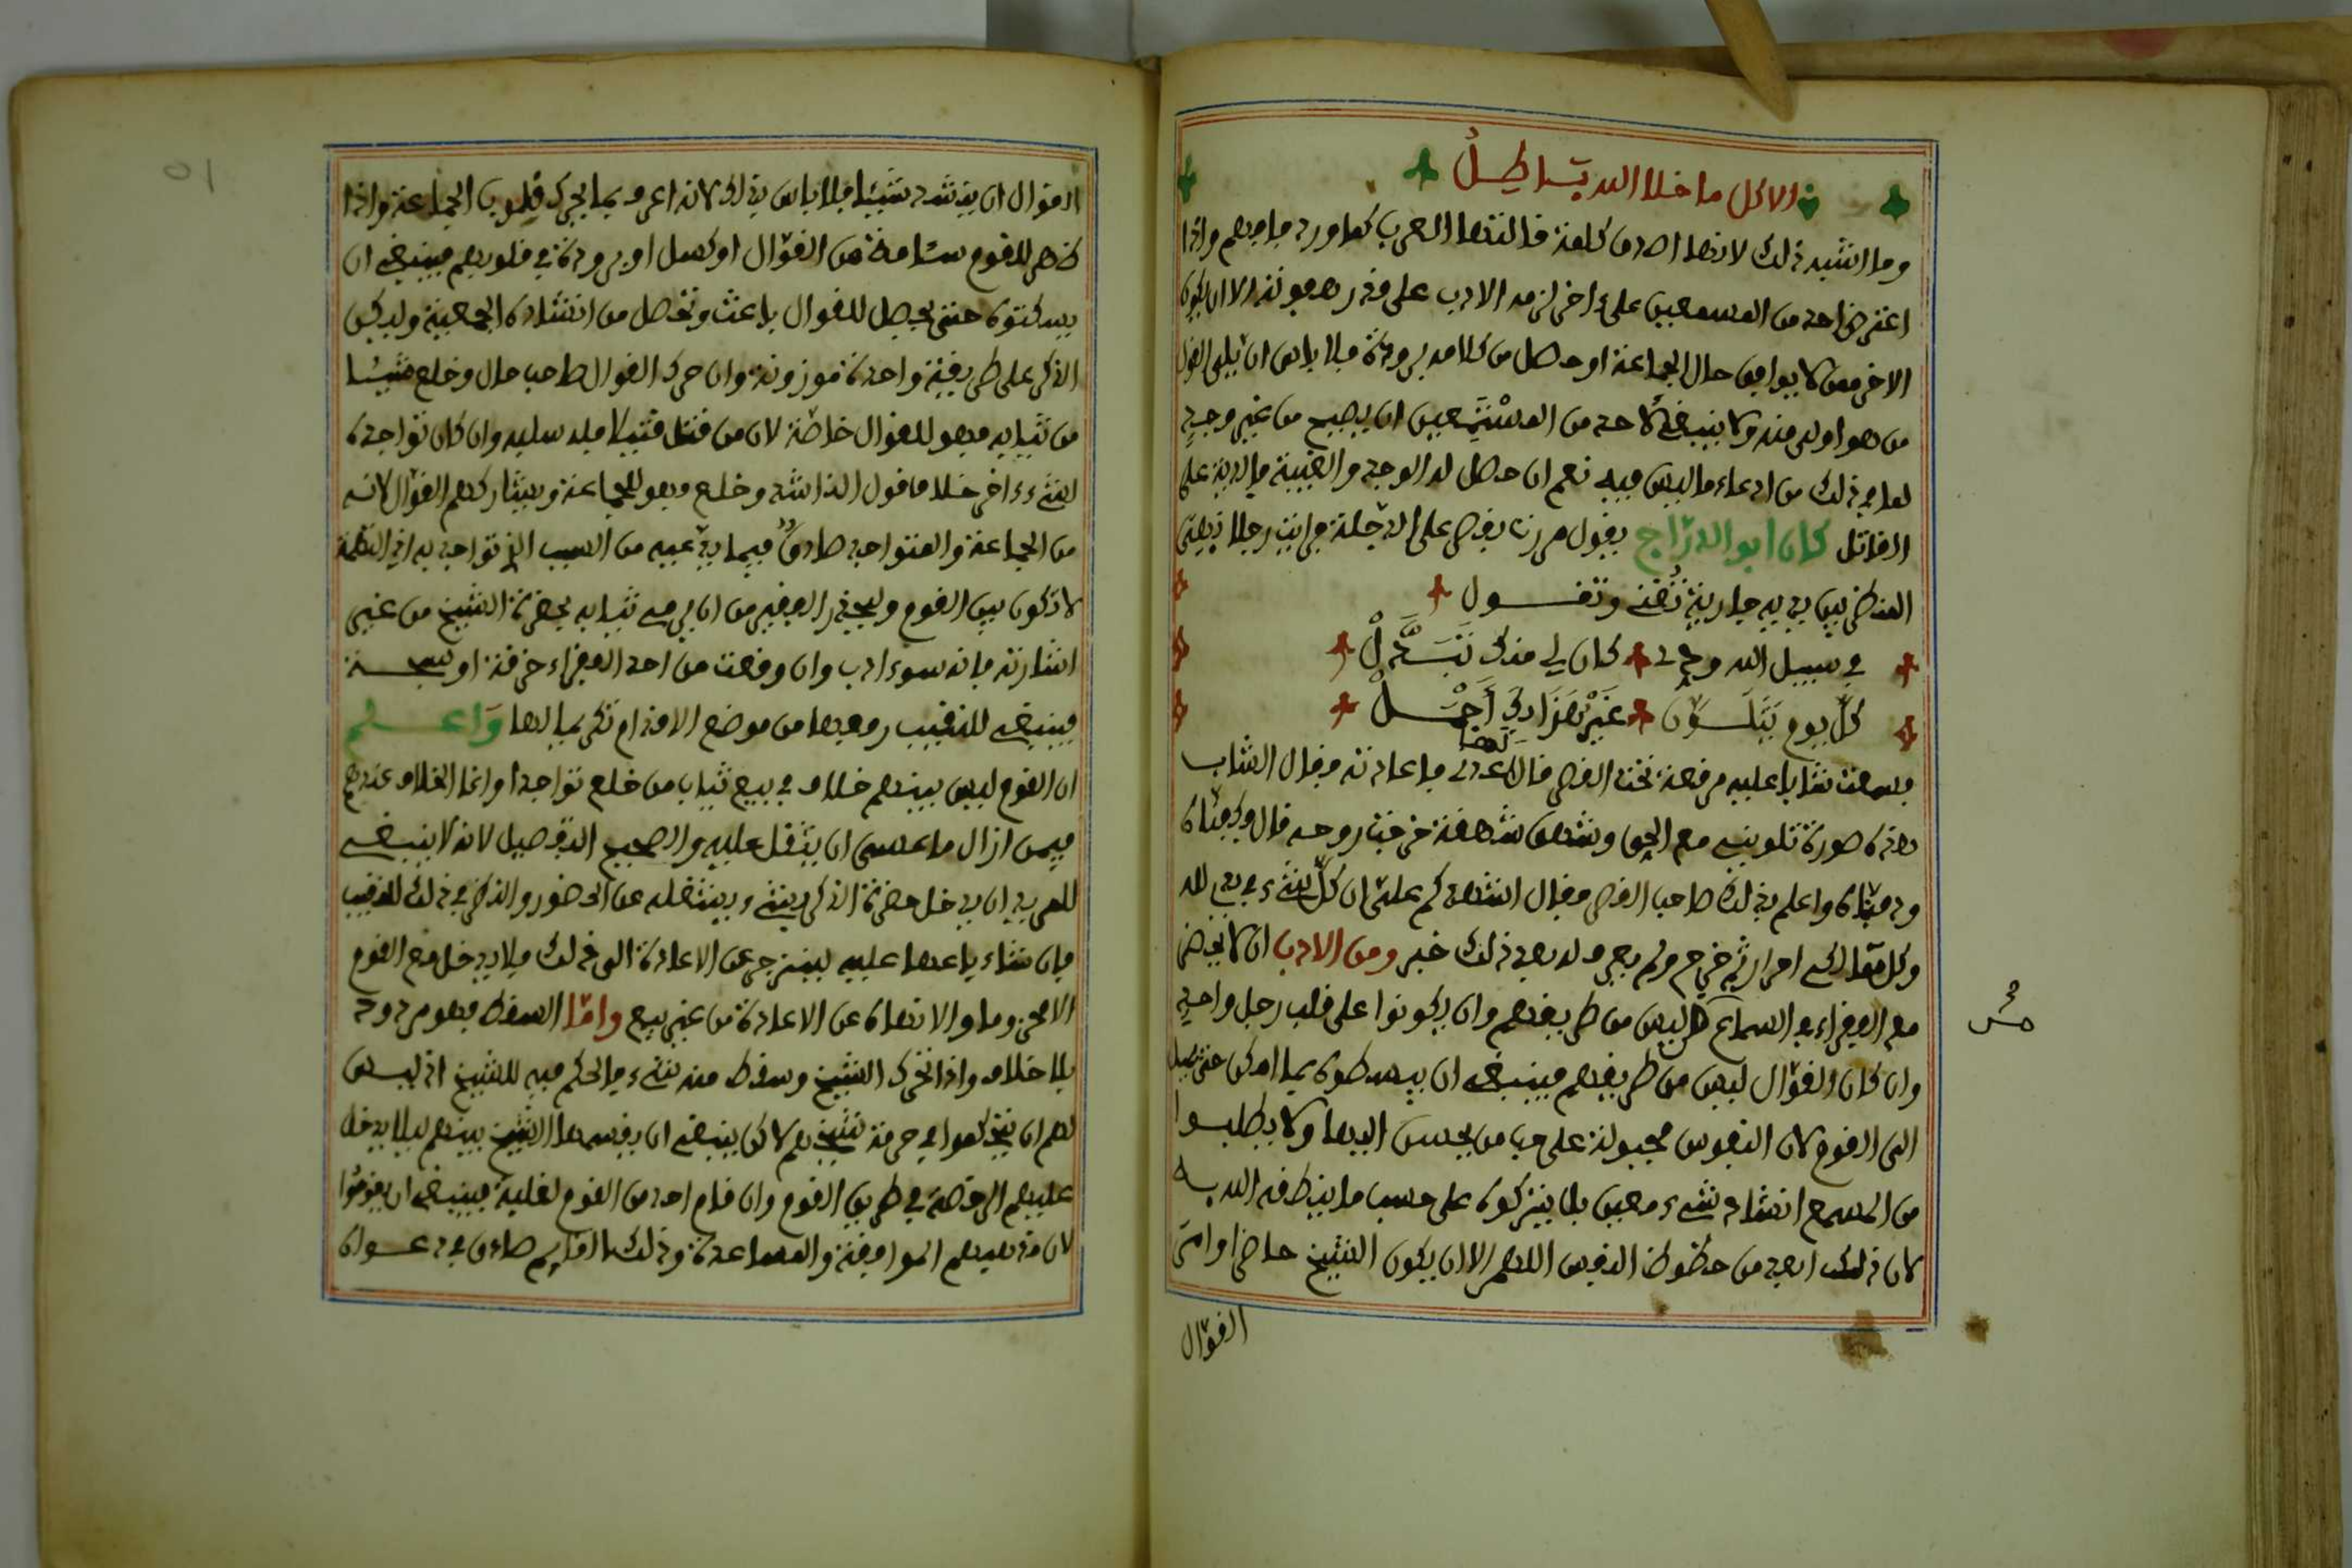 الا كل ما خلا الله باطل
وما اشبه ذلك لانها اصدق كلمة قالتها العرب كما ورد فافهم واذا
اعترض احد من المسمعين على اخر لزمه الادب على قدر رعونته الا ان يكون
الاخر ممن لا يوافق حال الجماعة او حصل من كلامه برودة فلا باس ان يلي القول
من هو اولى منه ولا ينبغي لاحد من المستمعين ان يصيح من غير وجد
لما في ذلك من ادعاء ما ليس فيه نعم ان حصل له الوجد والغيبة فالدية على
القاتل كان ابو الدرّاج يقول مررت بقصر على الدجلة فرايت رجلا
المنظر بين يديه جارية تغني وتقول
في سبيل الله ودّ كان لي منك يبذل
كل يوم يتلوّن غير هذا بك أجمل
فسمعت شابا عليه مرقعة تحت القصر قال لها عدي فاعادته فقال الشاب
هذه صورة تلوني مع الحق وشهق شهقة خرجت روحه قال وكفناه
ودفناه واعلم بذلك صاحب القصر فقال اشهدكم عليّ ان كل شيء في يدي لله
وكل مماليكي احرار ثم خرج ولم يعرف له بعد ذلك خبر ومن الادب ان لا يحضر
مع الفقراء في السماع من ليس من طريقهم وان يكونوا على قلب رجل واحد
وان كان القوّال ليس من طريقهم فينبغي ان يبسطوه بما امكن حتى يميل
الى القوم لان النفوس مجبولة على حب من يحسن اليها ولا يطلبوا
من المسمع انشاد شيء معين بل يتركوه على حسب ما ينطقه الله به
لان ذلك ابعد من حظوظ النفس اللهم الا ان يكون الشيخ حاضرا وامر
القوّال
صح
القوال ان ينشد شيئا فلا باس بذلك لانه اعرف بما يحرك قلوب الجماعة واذا
ظهر للقوم سئامة من القوّال او كسل او برودة في قلوبهم فينبغي ان
يسكتوه حتى يحصل للقوال باعث وتحصل من انشاده الجمعية وليكن
الذكر على طريقة واحدة موزونة وان حرك القوال صاحب حال وخلع شيئا
من ثيابه فهو للقوال خاصة لان من قتل قتيلا فله سلبه وان كان تواجده
لشيء اخر خلاف قول الذي انشد وخلع فهو للجماعة ويشاركهم القوّال لانه
من الجماعة والمتواجد صادق فيما يدعيه من السبب الذي تواجد به اذ التهمة
لا تكون بين القوم وليحذر الفقير من ان يرمي ثيابه بحضرة الشيخ من غير
اشارته فانه سوء ادب وان وقعت من احد الفقراء خرقة او سبحة
فينبغي للنقيب رفعها من موضع الاقدام تكريما لها واعلم
ان القوم ليس بينهم خلاف في بيع ثياب من خلع تواجدا وانما الخلاف عندهم
فيمن ازال ما عسى ان يثقل عليه والصحيح التفصيل لانه لا ينبغي
للمريد ان يدخل حضرة الذكر بشيء يثقله عن الحضور والنظر في ذلك للنقيب
فان شاء باعها عليه لينزجر عن الاعادة الى ذلك فلا يدخل مع القوم
الا محزوما والانتهاء عن الاعادة من غير بيع وامّا السقط فهو مردود
بلا خلاف واذا تحرك الشيخ وسقط منه شيء فالحكم فيه للشيخ اذ ليس
لهم ان يتحكموا في خرقة شيخهم لاكن ينبغي ان يقسمها الشيخ بينهم ليلا يدخل
عليهم الرخصة في طريق القوم وان قام احد من القوم لغلبة فينبغي ان يقوموا
لان مذهبهم الموافقة والمساعدة وذلك القايم صادق في دعواه